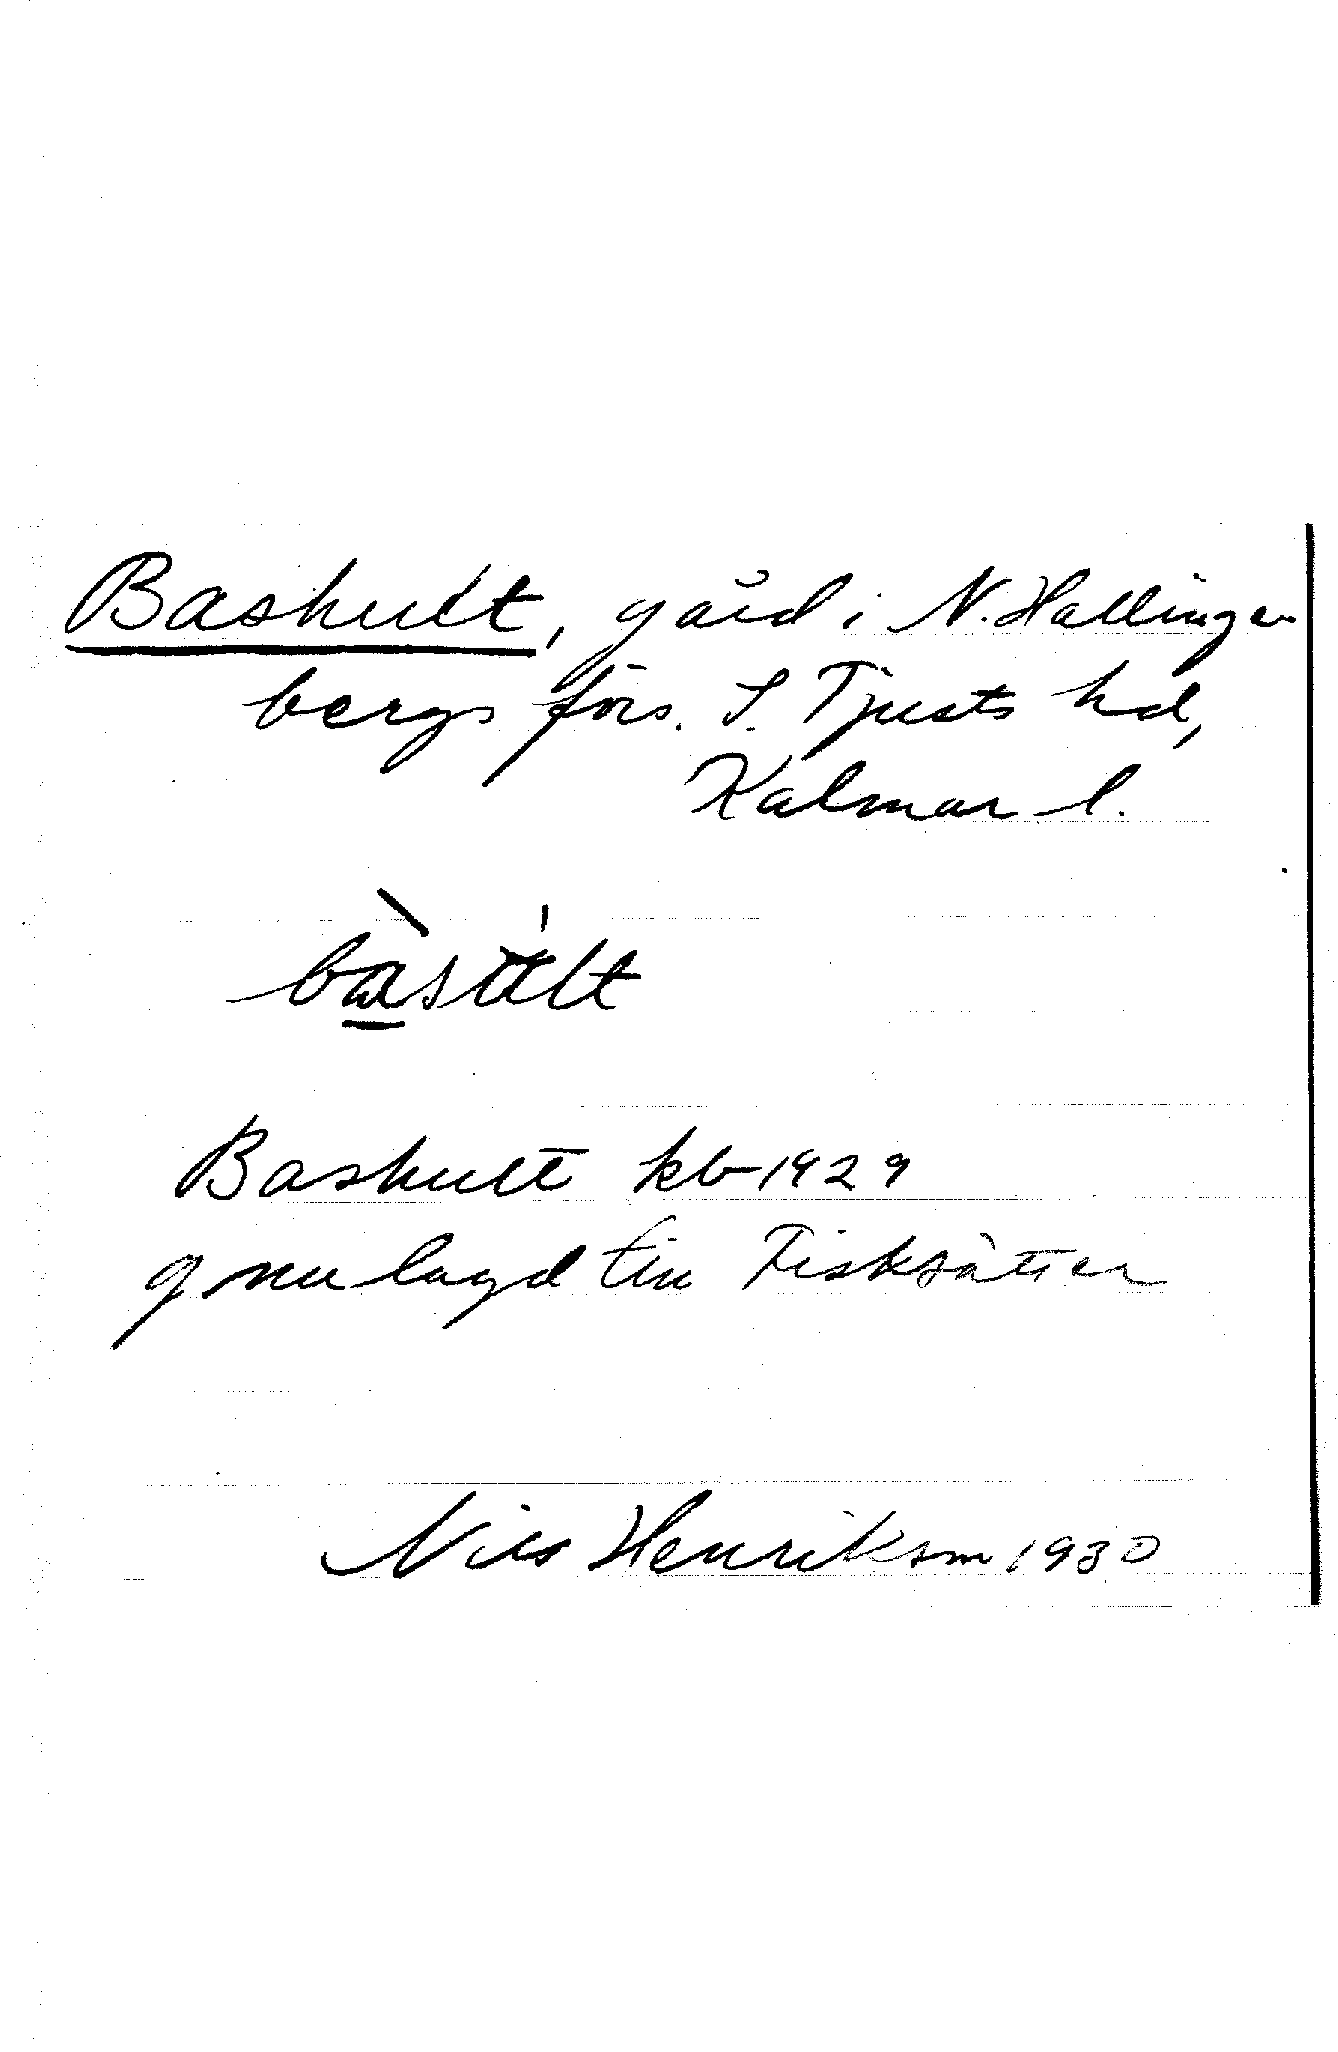 Bashult, gård i N. Hallingen
bergs förs. S. Tjusts hd,
Kalmar l.
bàsult
Bashult kb 1929
g nu lagd till Fisksätter
Nils Henrikson 1930